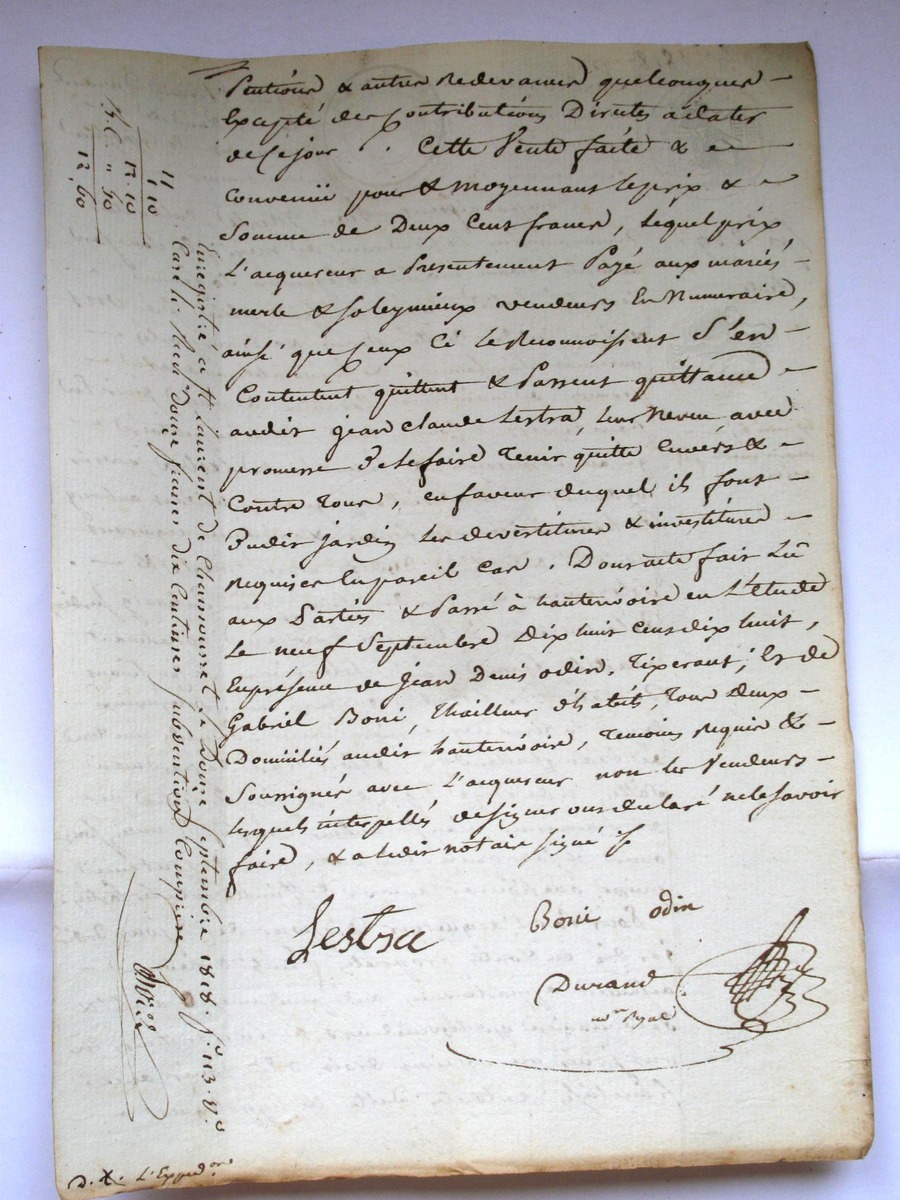 Pentions & autres Redevances quelconques –
Excepté des Contributions Directes à dater
de Ce jour . Cette Vente faite & –
Convenüe pour & moyennant le prix & –
Somme de Deux Cent francs, Lequel prix
L'acquereur a Presentement Payé aux mariés –
merle & Soleymieux vendeurs En Numeraire,
ainsi que Ceux Ci le Reconnoissent S'en –
Contentent quittent & Passent quittance –
audit jean Claude Lestra, leur Neveu avec
promesse De le faire Tenir quitte Envers & –
Contre Tous, en faveur duquel ils font –
Dudit jardin les devestitures & investitures –
Requises En pareil Cas . Dont acte fait Lû
aux Parties & Passé à hauterivoire en L'etude
Le neuf Septembre Dix huit Cent dix huit,
En présence de Jean Denis odin, Tixerant, Et de
Gabriel Boni, Thailleur d'habits, Tous Deux –
Domiciliés audit hauterivoire, Temoins Requis & –
Soussignés avec L'acquereur non les Vendeurs –
lesquels interpellés de signer ont declaré ne le Savoir
faire, & a ledit notaire signé
Lestra
Boni odin
Durand
n.re Royal
11
1 10
12. 10
" 50
12, 60
Enregistré à St Laurent de Chamousset le Douze Septembre 1818. f.o 113. v.o
Case Reçu Douze francs dix Centimes subvention Comprise
D. X. L'Exped.on